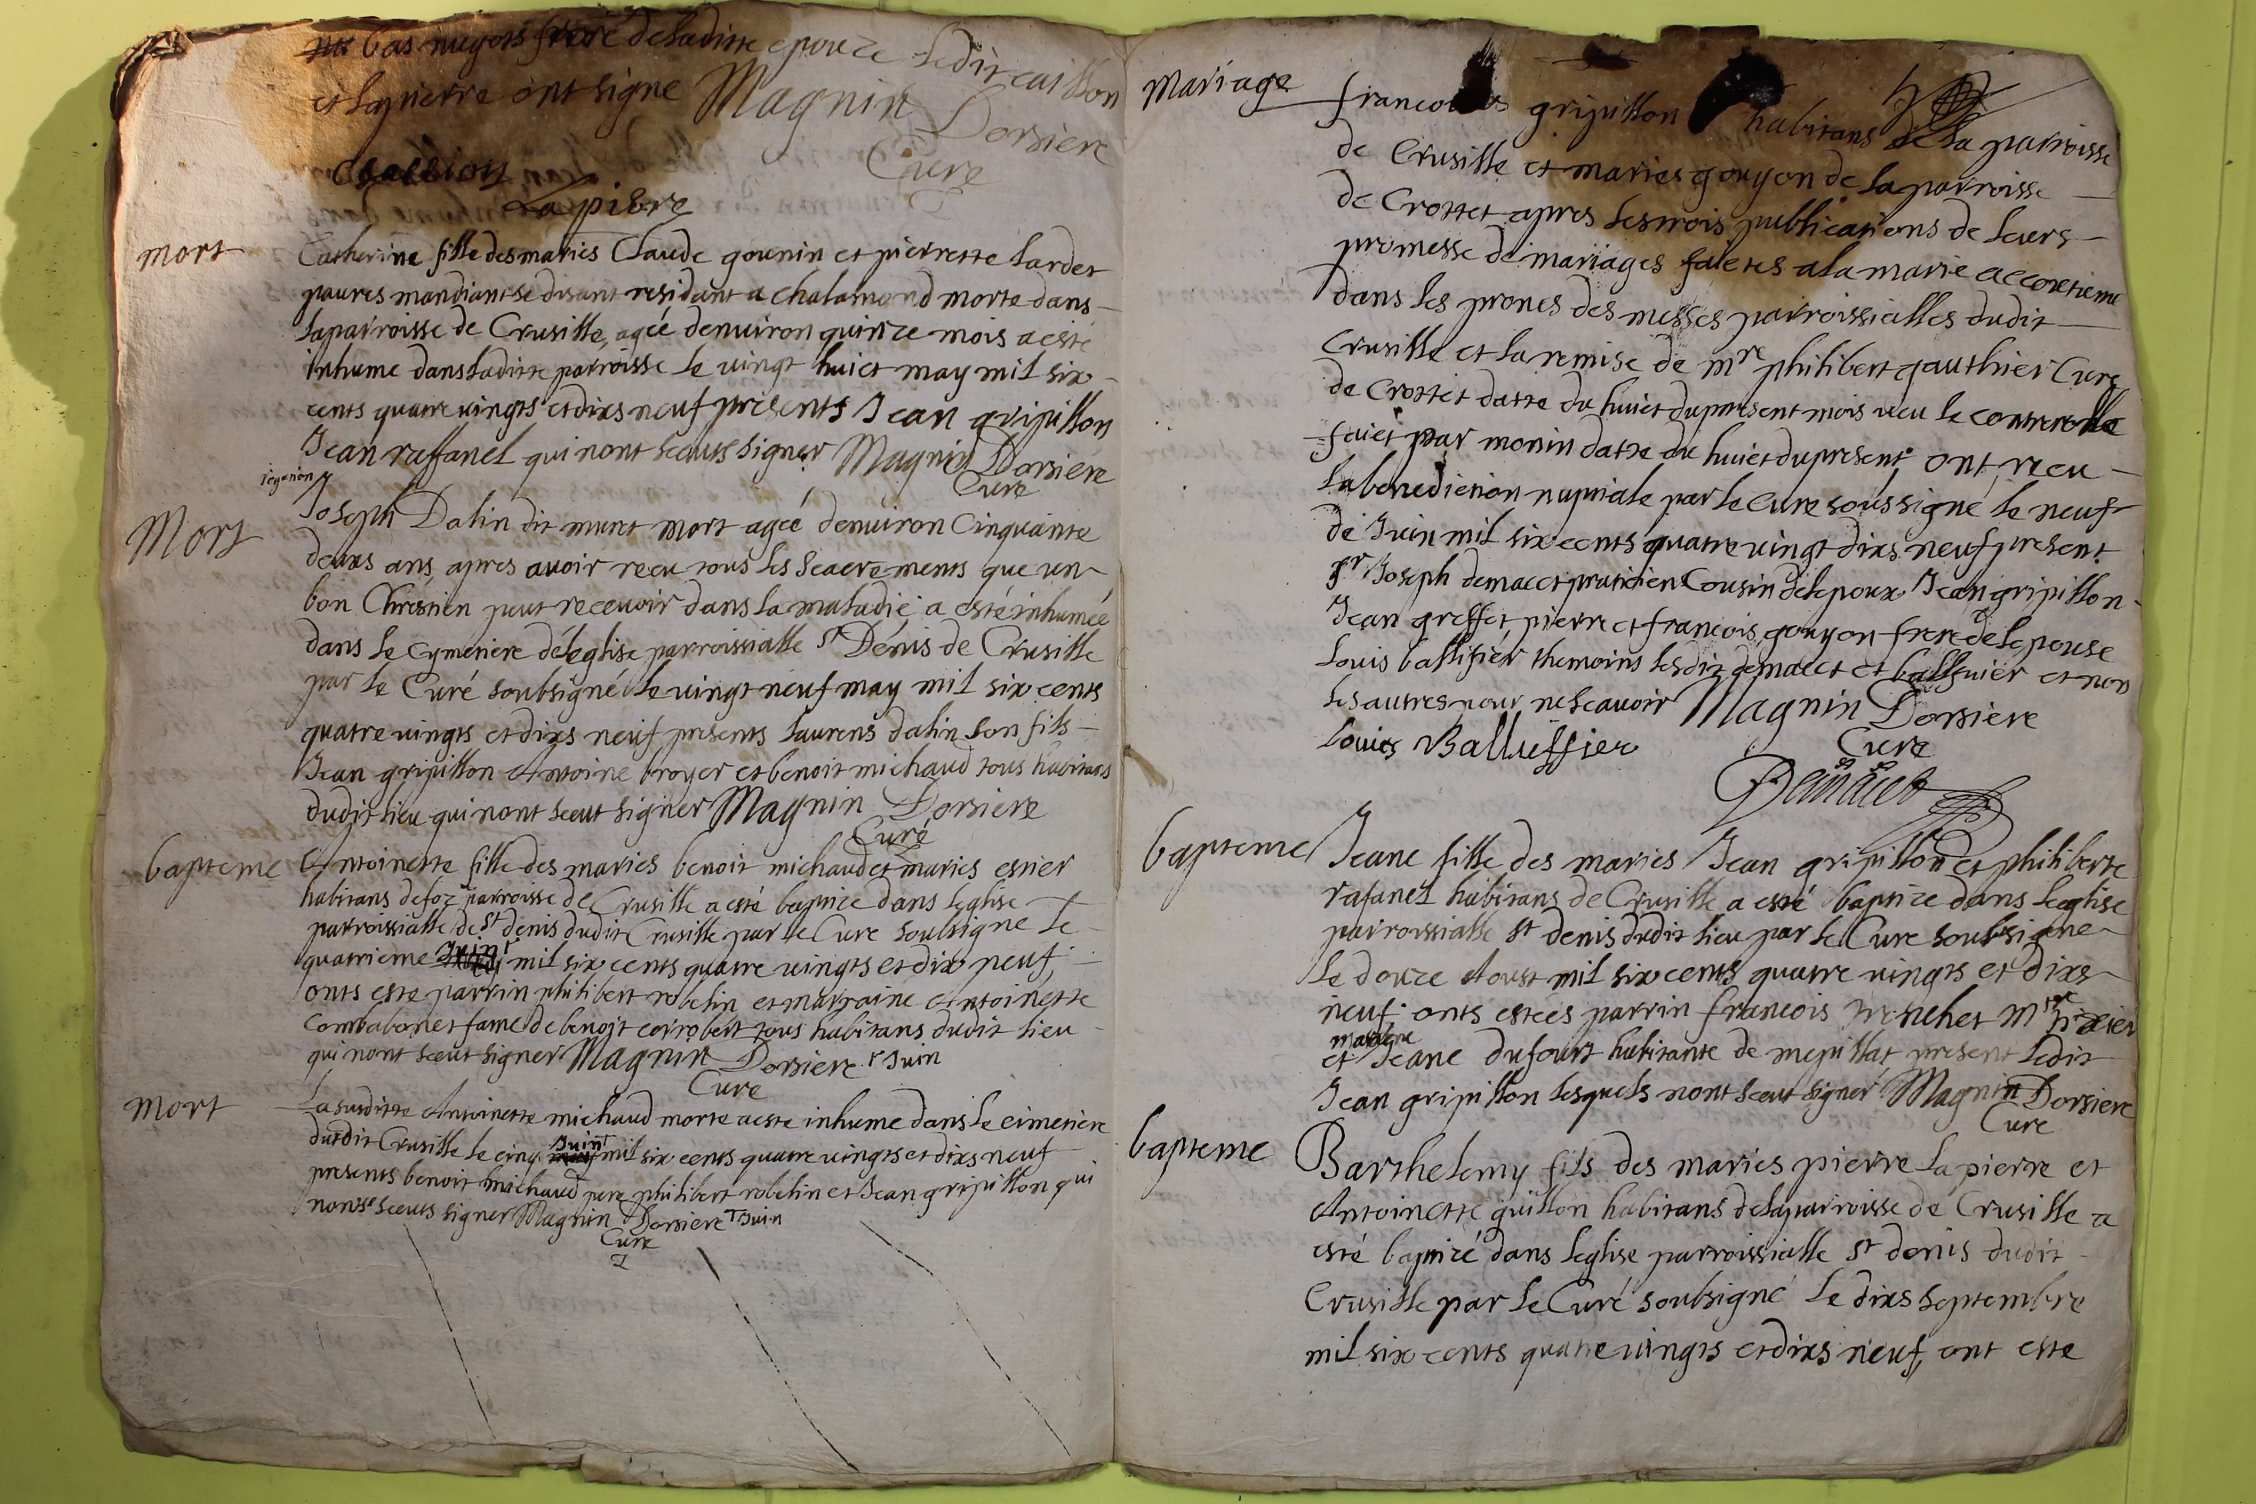 bas nuyots frere deladitte epouze ledit caillon
et lapierre ont signe Magnin Dorsiere
Cure
La pierre
mort
Catherine fille des maries Claude gounin et pierrette lardet
paures mandiant se disant residant a chalamond morte dans
la parroisse de Crusille, ageé denuiron quinze mois a esté
inhume dans laditte parroisse le vingt huict may mil six
cents quatre vingts et dixs neuf presents Jean gripillon
Jean raffanel qui nont sceuts signer Magnin Dorsiere
Cure
Mort
Joseph Dalin dit muret mort ageé denuiron Cinquante
deuxs ans apres auoir receu tous les Seacrements que un
bon Chrestien peut receuoir dans la maladie a esté inhumeé
dans le Cymetiere deleglise parroissialle st Dénis de Crusille
par le Curé soubsigné le vingt neuf may mil six cents
quatre vingts et dixs neuf presents laurens dalin son fils
Jean gripillon Antoine broyer et benoit michaud tous habitans
dudit lieu qui nont sceut signer Magnin Dorsiere
Curé
bapteme
Antoinette fille des maries benoit michaud et maries estier
habitans defoz parroisse de Crusille a esté baptize dans leglise
parroissialle de st denis dudit Crusille par le Cure soubsigne le
quatrieme mil six cents quatre vingts et dix neuf
onts este parrin philibert robelin et marraine Antoinette
Combabonet fame de benoit corrobert tous habitans dudit lieu
qui nont sceut signer Magnin Dorsiere r Juin
Cure
mort
La susditte Antoinette michaud morte a este inhume dans le cimetiere
dudit Crusille le cinq Juin mil six cents quatre vingts et dixs neuf
presents benoit michaud pere philibert robelin et Jean gripillon qui
nonts sceuts signer Magnin Dorsiere r Juin
Cure
Mariage
francois gripillon habitans de la parroisse
de Crusille et maries gouyon de la parroisse
de Crottet apres les trois publications de leurs
promesse de mariages faietes a la maniere accoutume
dans les prones des messes parroissialles dudit
Crusille et la remise de mre philibert gauthier Cure
de Crottet datte du huict du present mois veu le controlle
faict par monin datte du huict du present ont receu
la benediction nuptiale par le Cure soussigné le neuf
de Juin mil six cents quatre vingt dixs neuf present
sr Joseph demaect praticien Cousin de lepoux Jean gripillon
Jean greffet pierre et francois gouyon frere de lepouse
Louis ballifier themoins lesdit demaect et ballifuier et non
les autres pour ne scavoir Magnin Dorsiere
Cure
Louis Balluffier
bapteme
Jeane fille des maries Jean gripillon et philiberte
rafanel habitans de Crusille a esté baptize dans leglise
parroissialle st denis dudit lieu par le Cure soubsigne
le douze Aoust mil six cents quatre vingts et dixs
neuf onts esteés parrin francois
et Jeane dufourt habitante de mepillat present ledit
Jean gripillon lesquels nont sceut signer Magnin Dorsiere
Cure
bapteme
Barthelemy fils des maries pierre lapierre et
Antoinette guillon habitans de laparroisse de Crusille a
esté baptizé dans leglise parroissialle st denis dudit
Crusille par le Curé soubsigné le dixs septembre
mil six cents quatre vingts et dixs neuf, ont este